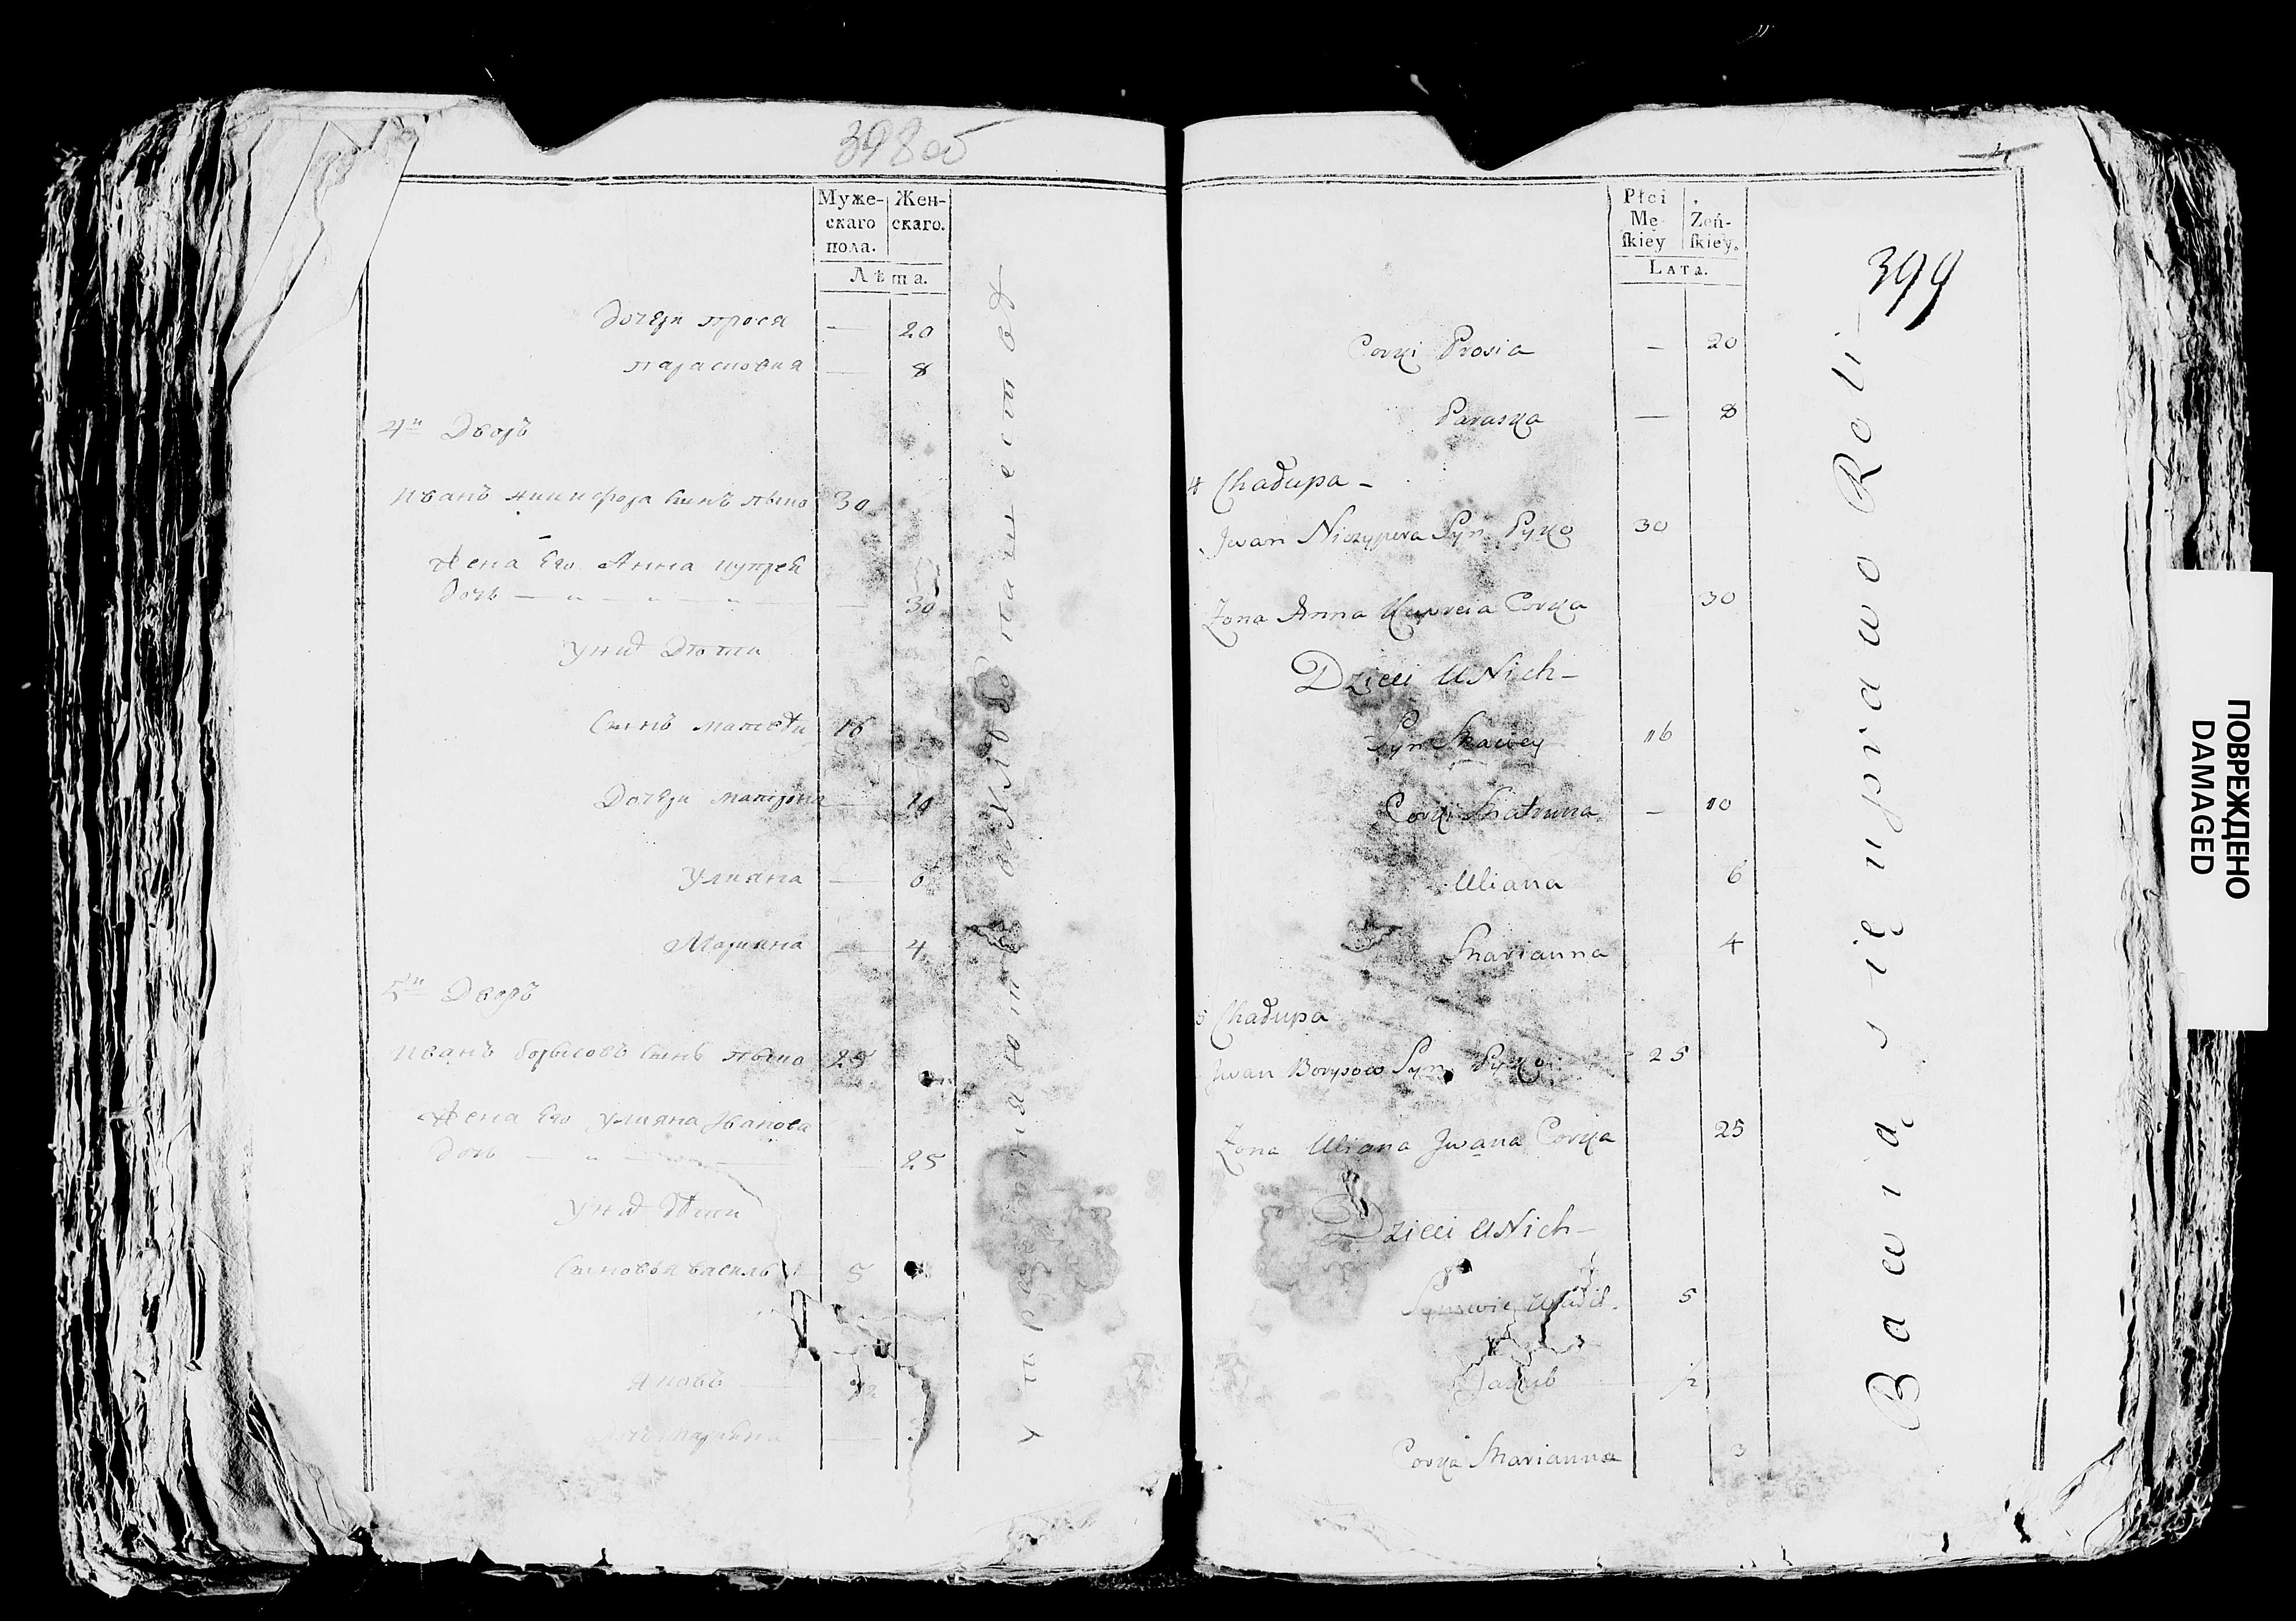 398 об
Муже-
скаго
пола.
Жен-
скаго.
Лѣта.
Дочери Прося — 20
Парасковия — 8
4й Дворъ
Иванъ Ничипора сынъ Пыпко 30
Жена Его Анна Купрея
дочь — " — " — " — 30
У нихъ Дѣти
Сынъ Матвѣй 16
Дочери Матрона — 10
Улияна — 6
Марияна — 4
5й Дворъ
Иванъ Борысовъ сынъ 25
Жена Его Улияна Иванова
дочь — " — 25
У нихъ Дѣти
Сыновья Василь 5
Яковъ — 1/2
дочь Марияна — 3
упражняются въ хлебопашестве
Płci
Mę-
ſkiey
Żeń-
ſkiey.
Lata.
399
Corki Prosia — 20
Paraska — 8
4 Chadupa -
Jwan Niczypera Syn 30
Zona Anna Kupreia Corka 30
Dzieci U Nich -
Syn Maciey 16
Corki Matruna — 10
Uliana 6
Marianna 4
5 Chadupa
Jwan Borysow Syn 25
Zona Uliana Jwana Corka 25
Dzieci U Nich -
Synowie Wasil. 5
Jakub 1/2
Corka Marianna 3
Bawią się uprawą Roli
ПОВРЕЖДЕНО
DAMAGED